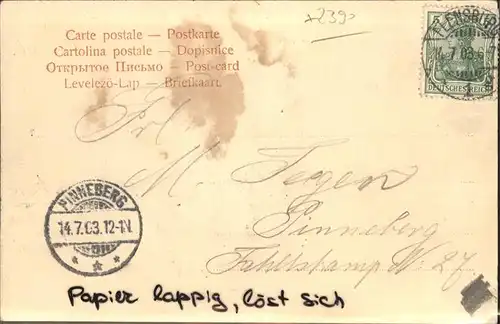 +2390
Carte postale — Postkarte
Cartolina postale — Dopisnice
Открытое Письмо — Post-card
Levelező-Lap — Briefkaart.
FLENSBURG
14.7.03
DEUTSCHES REICH
Frl.
M. Jergen
Pinneberg
PINNEBERG
14.7.03.12-1N.
Fahltskamp No 27
Papier lappig, löst sich